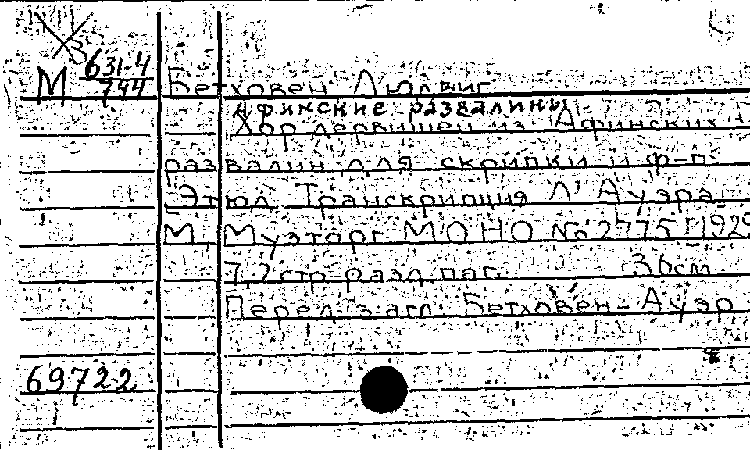 М 631-4
744
Бетховен Людвиг
Афинские развалины
Хор дервишей из "Афинских
развалин для скрипки и ф-п.
Этюд Транскрипция Л. Ауэра.
М., Музторг МОНО № 2775 [192
7,2 стр. разд. паг. 36см
Перед загл: Бетховен-Ауэр
69722